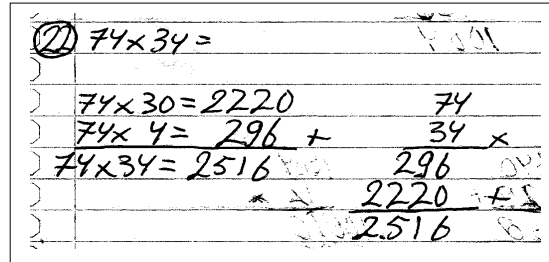 22 74×34=
74×30=2220
74× 4= 296 +
74×34=2516
74
34 ×
296
2220 +
2516